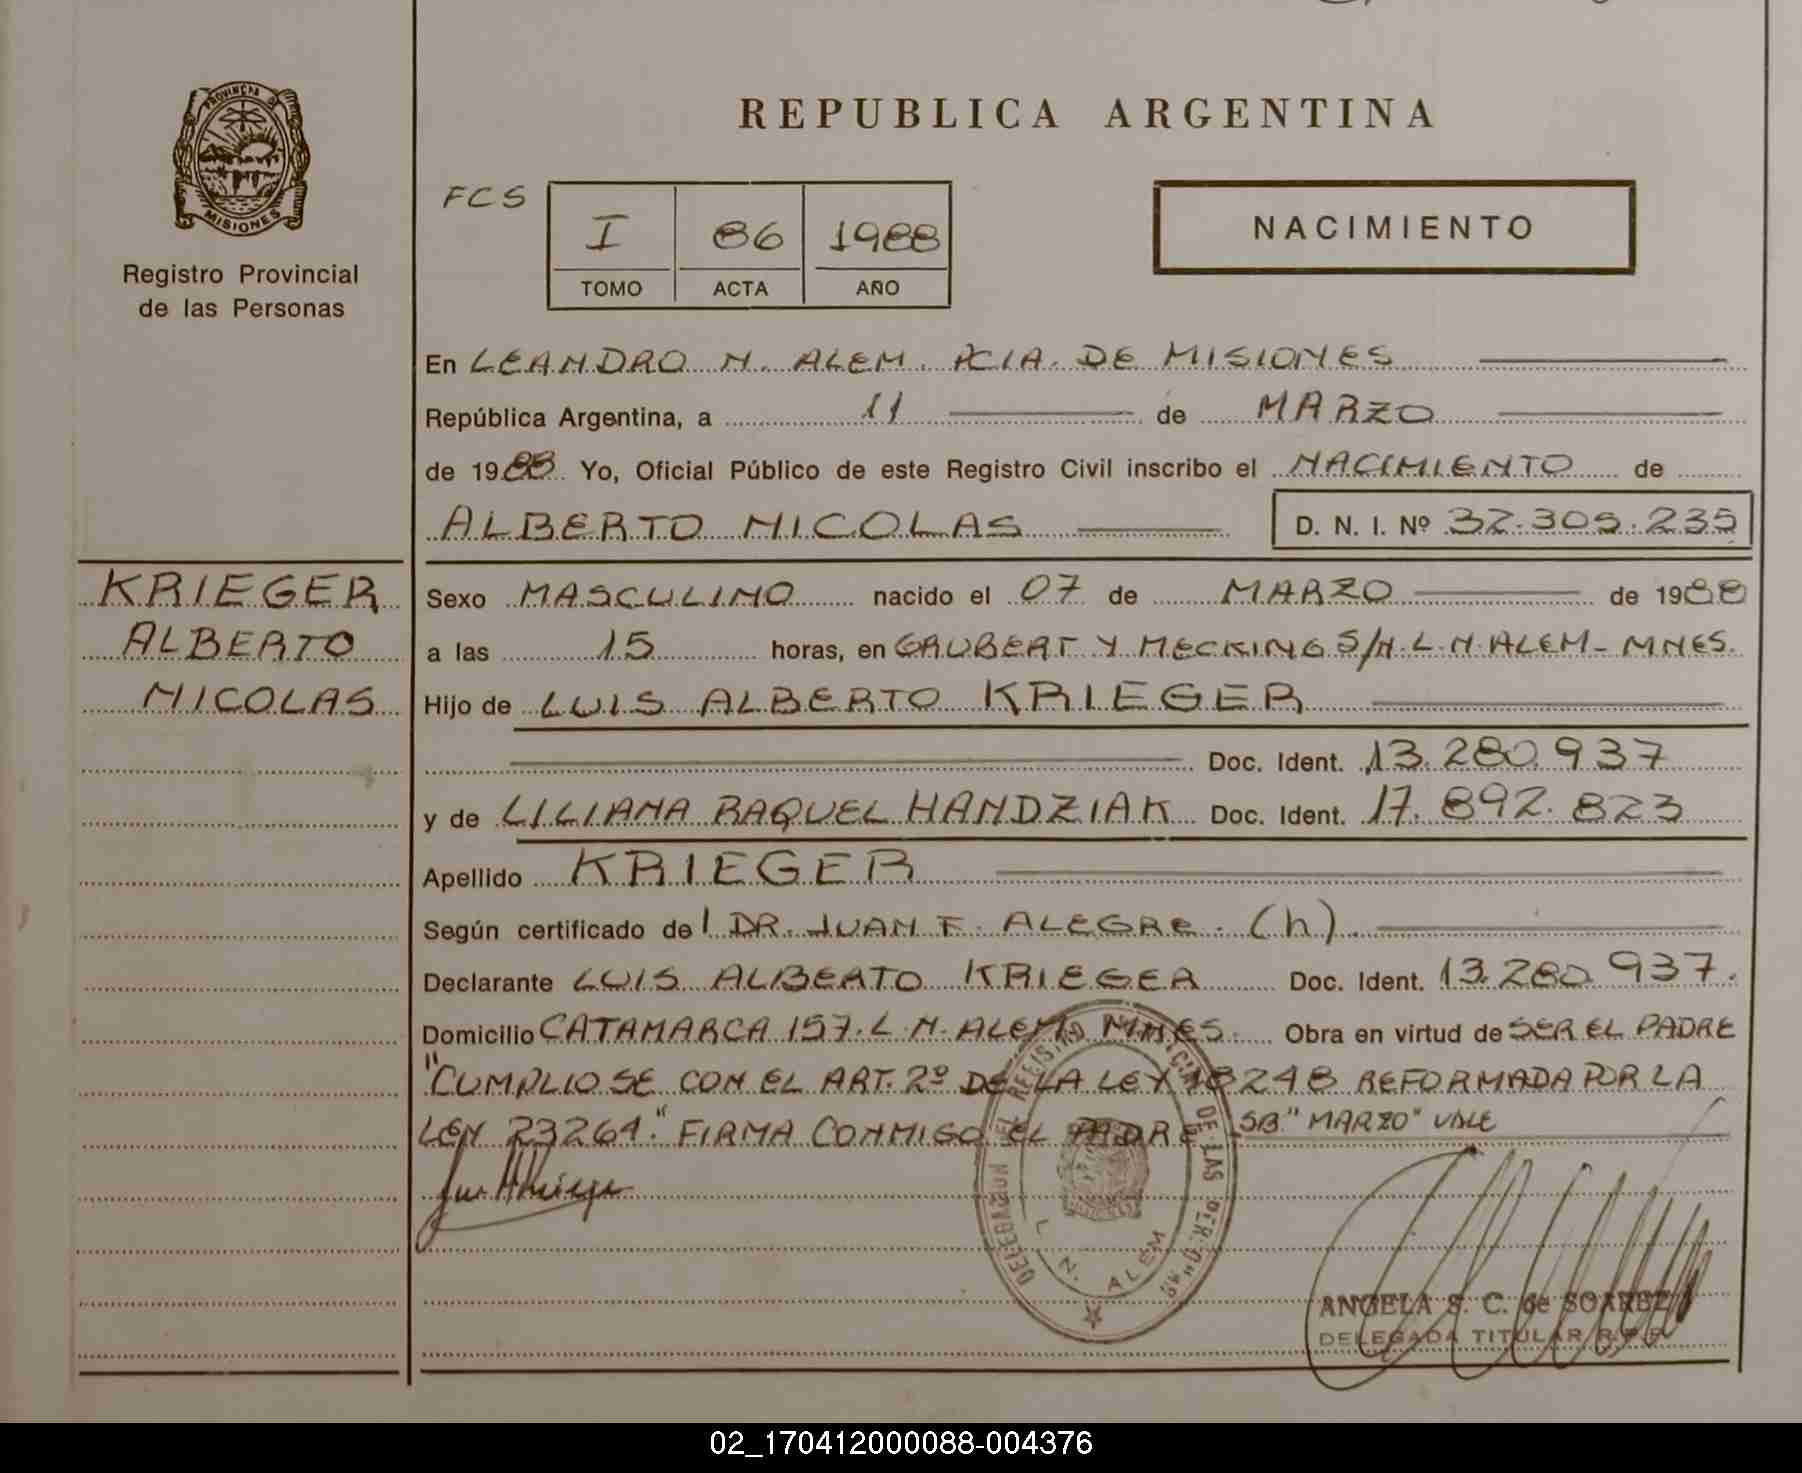 REPUBLICA ARGENTINA
PROVINCIA DE
MISIONES
Registro Provincial
de las Personas
FCS
I 86 1988
TOMO ACTA AÑO
NACIMIENTO
En LEANDRO N. ALEM. PCIA. DE MISIONES
República Argentina, a 11 de MARZO
de 1988 Yo, Oficial Público de este Registro Civil inscribo el NACIMIENTO de
ALBERTO NICOLAS D. N. I. Nº 32.305.235
KRIEGER
ALBERTO
NICOLAS
Sexo MASCULINO nacido el 07 de MARZO de 1988
a las 15 horas, en GRUBERT Y MECKING S/N. L. N. ALEM - MNES.
Hijo de LUIS ALBERTO KRIEGER
Doc. Ident. 13.280.937
y de LILIANA RAQUEL HANDZIAK Doc. Ident. 17.892.823
Apellido KRIEGER
Según certificado del DR. JUAN F. ALEGRE. (h).
Declarante LUIS ALBERTO KRIEGER Doc. Ident. 13.280.937.
Domicilio CATAMARCA 157. L. N. ALEM. MNES. Obra en virtud de SER EL PADRE
"CUMPLIOSE CON EL ART. 2º DE LA LEY 18248 REFORMADA POR LA
LEY 23264." FIRMA CONMIGO EL PADRE SB "MARZO" VALE
DELEGACION DEL REGISTRO PROVINCIAL DE LAS PERSONAS
L. N. ALEM
ANGELA S. C. de SOAREZ
DELEGADA TITULAR R.P.P.
02_170412000088-004376